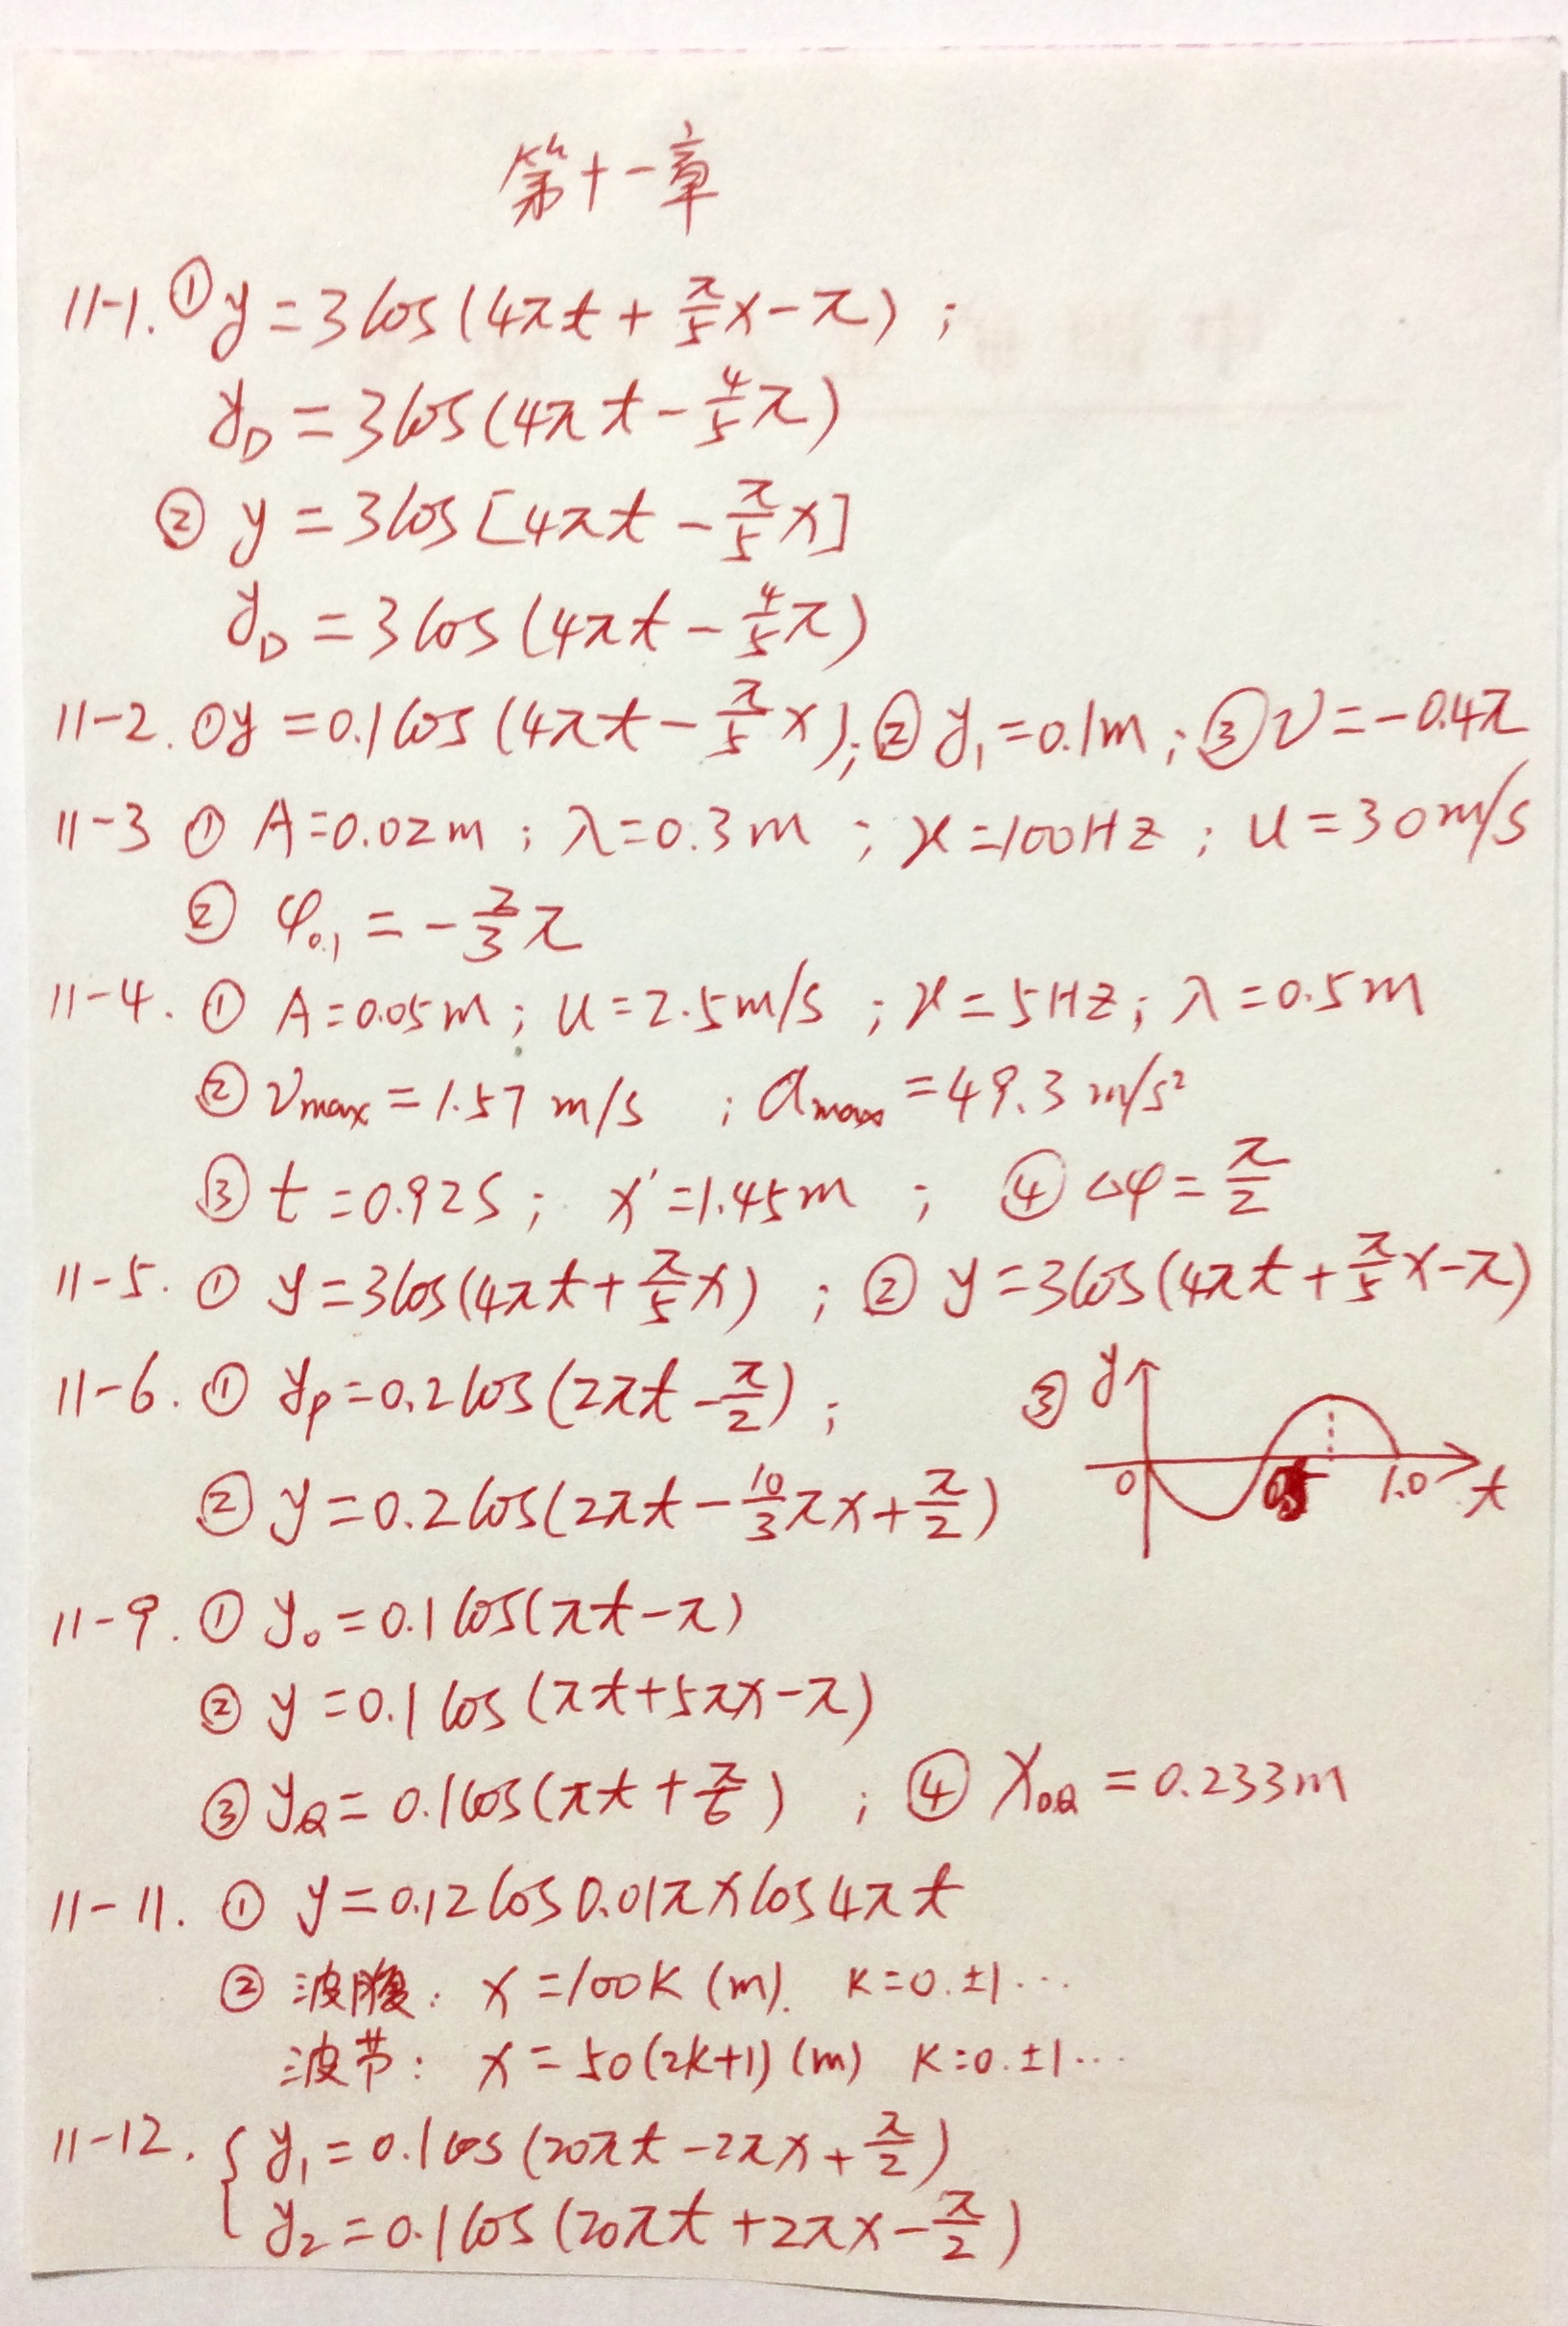 第十一章
11-1. ① y = 3cos(4πt + π/5 x - π) ;
y_D = 3cos(4πt - 4/5 π)
② y = 3cos[4πt - π/5 x]
y_D = 3cos(4πt - 4/5 π)
11-2. ① y = 0.1cos(4πt - π/5 x); ② y₁ = 0.1m ; ③ v = -0.4π
11-3 ① A=0.02m ; λ=0.3m ; ν=100HZ ; u=30m/s
② φ₀.₁ = -2/3 π
11-4. ① A=0.05m ; u=2.5m/s ; ν=5HZ ; λ=0.5m
② v_max = 1.57 m/s ; a_max = 49.3 m/s²
③ t=0.92S ; x'=1.45m ; ④ Δφ = π/2
11-5. ① y=3cos(4πt + π/5 x) ; ② y=3cos(4πt + π/5 x - π)
11-6. ① y_P=0.2cos(2πt - π/2) ; ③ y
② y=0.2cos(2πt - 10/3 πx + π/2) 0 0.5 1.0 t
11-9. ① y₀=0.1cos(πt - π)
② y=0.1cos(πt+5πx-π)
③ y_Q=0.1cos(πt + π/6) ; ④ x_OQ = 0.233m
11-11. ① y=0.12cos0.01πx cos4πt
② 波腹: x=100K (m). K=0.±1…
波节: x=50(2k+1) (m) K=0.±1…
11-12. { y₁=0.1cos(20πt - 2πx + π/2)
y₂=0.1cos(20πt + 2πx - π/2)